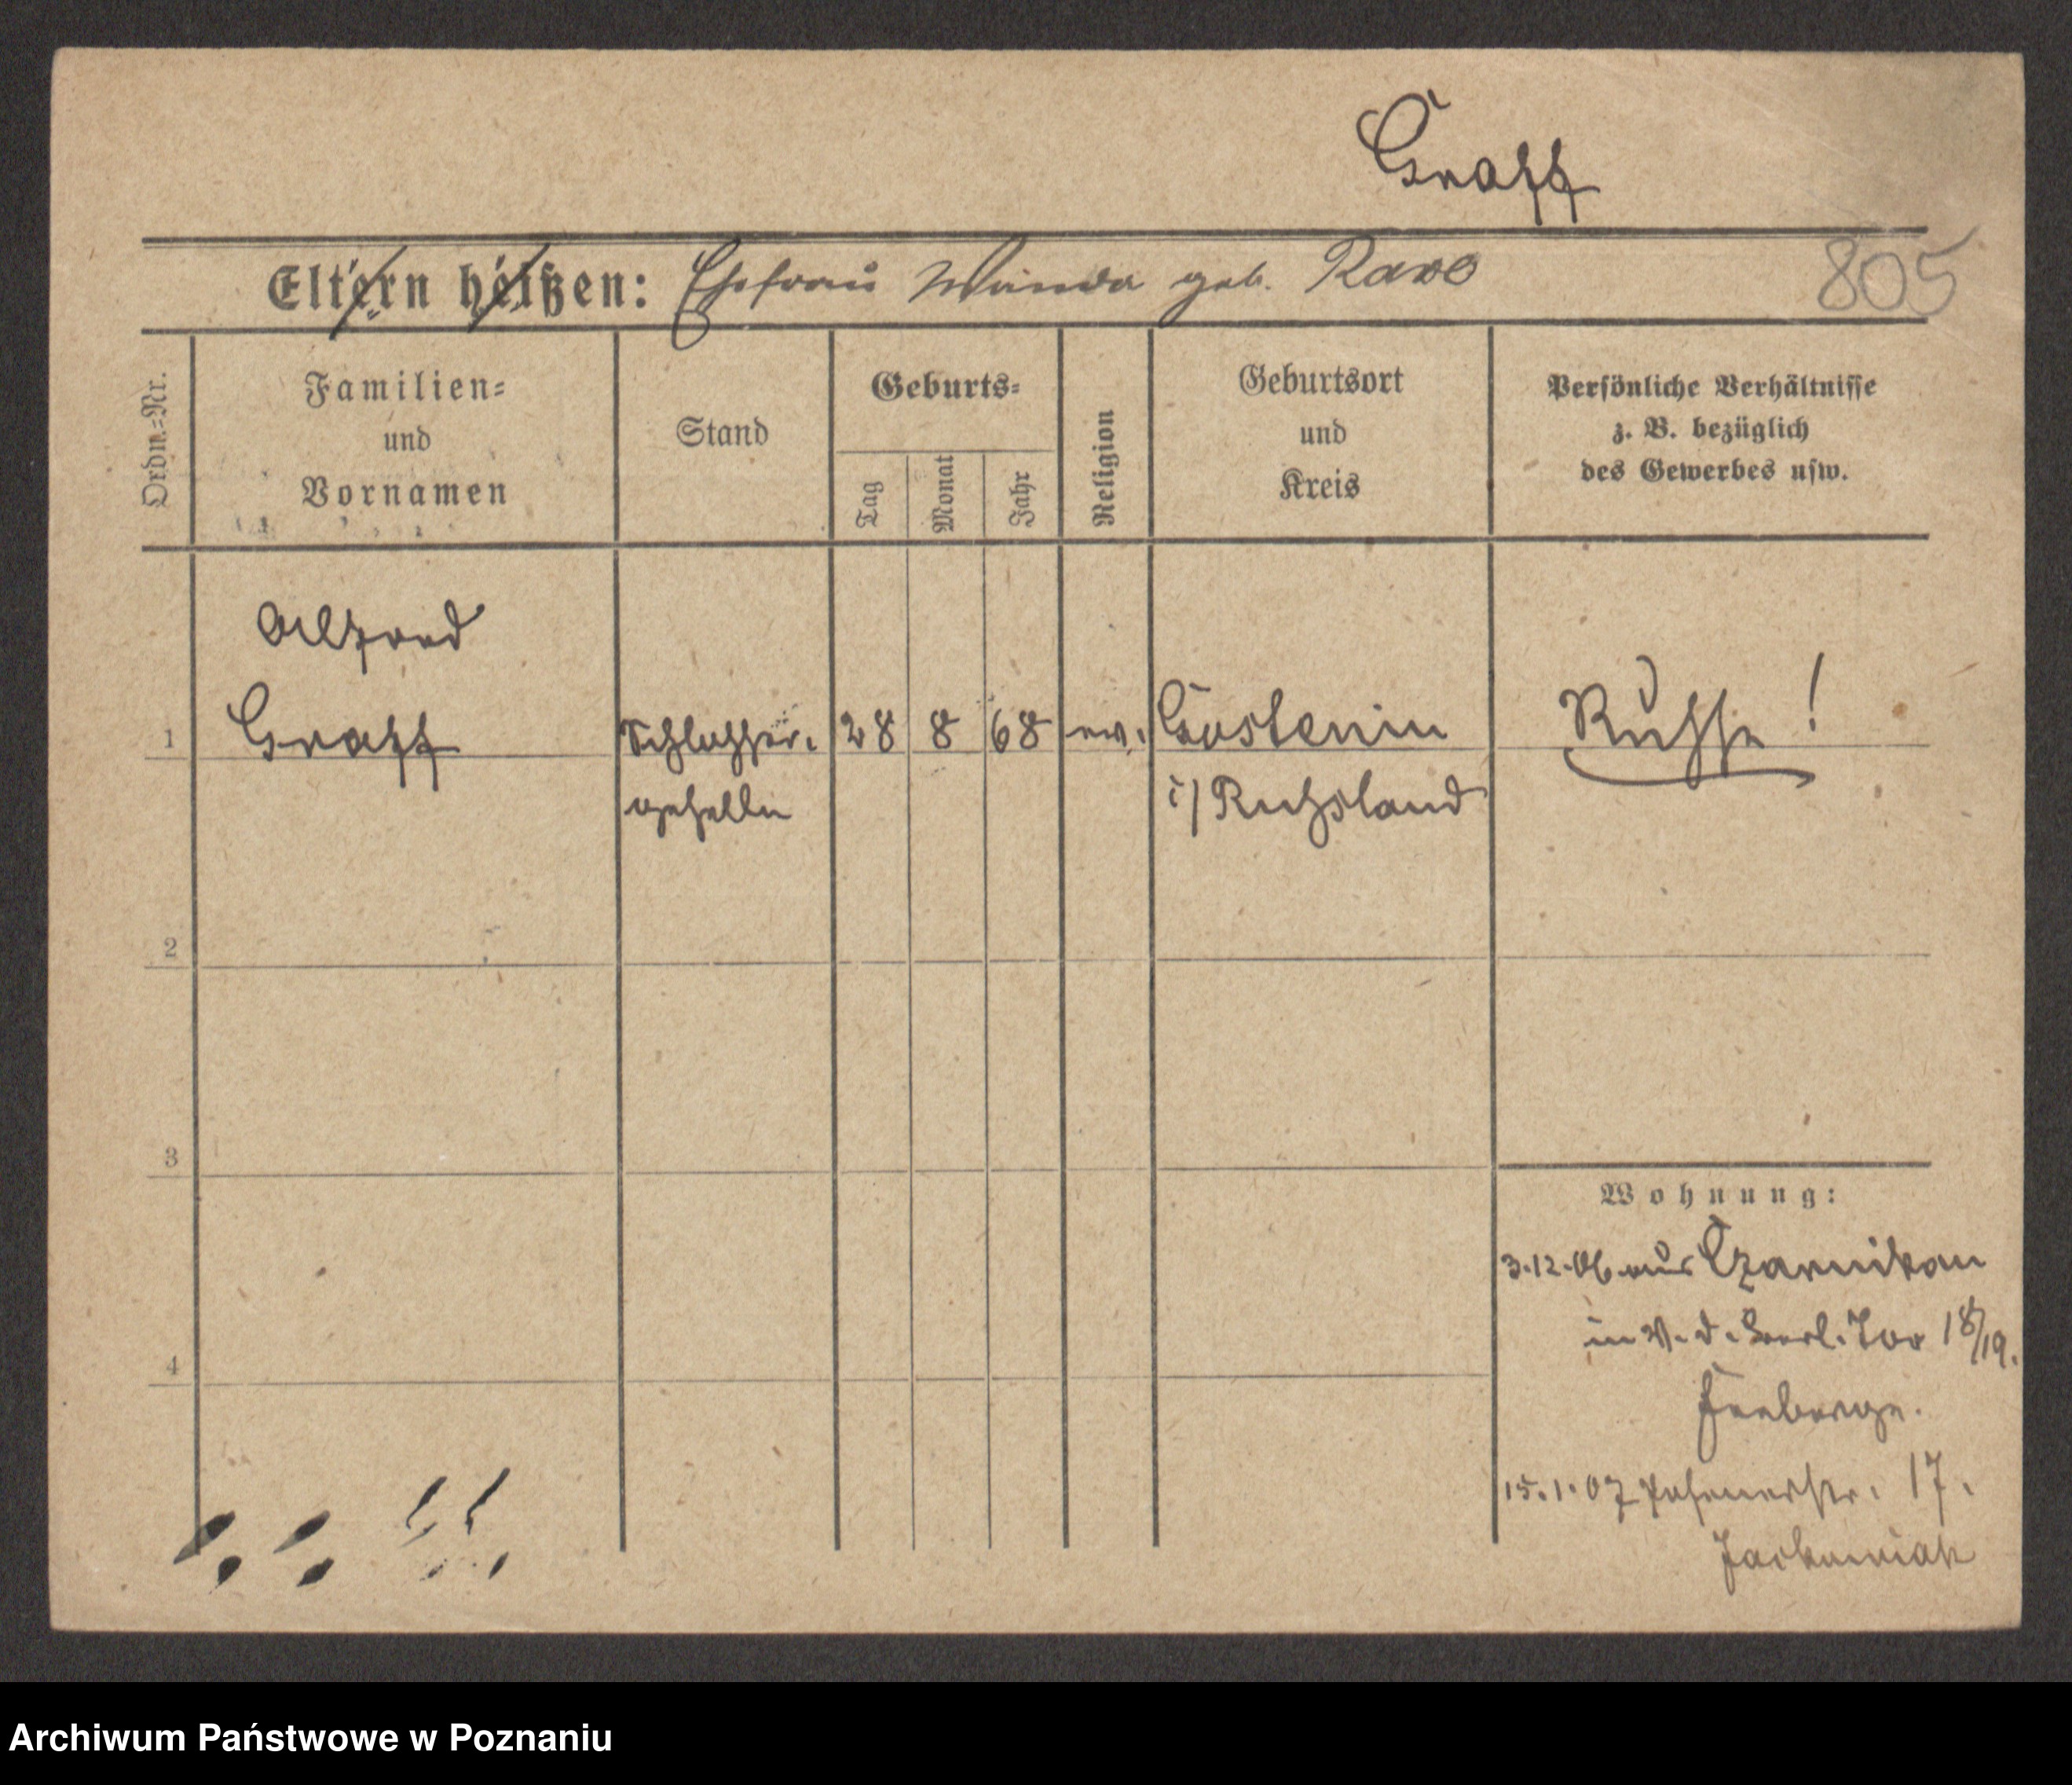 Graff
Eltern heißen: Ehefrau Wanda geb. Rawe
805
Ordn.=Nr.
Familien=
und
Vornamen
Stand
Geburts=
Tag
Monat
Jahr
Religion
Geburtsort
und
Kreis
Persönliche Verhältnisse
z. B. bezüglich
des Gewerbes usw.
Alfred
1 Graff Schlosser. 28 8 68 ev. Gostenin Russe!
geselle i/ Russland
2
3
4
Wohnung:
3.12.06 aus Czarnikau
in V. d. Berl. Tor 18/19.
15.1.07 Posenerstr. 17.